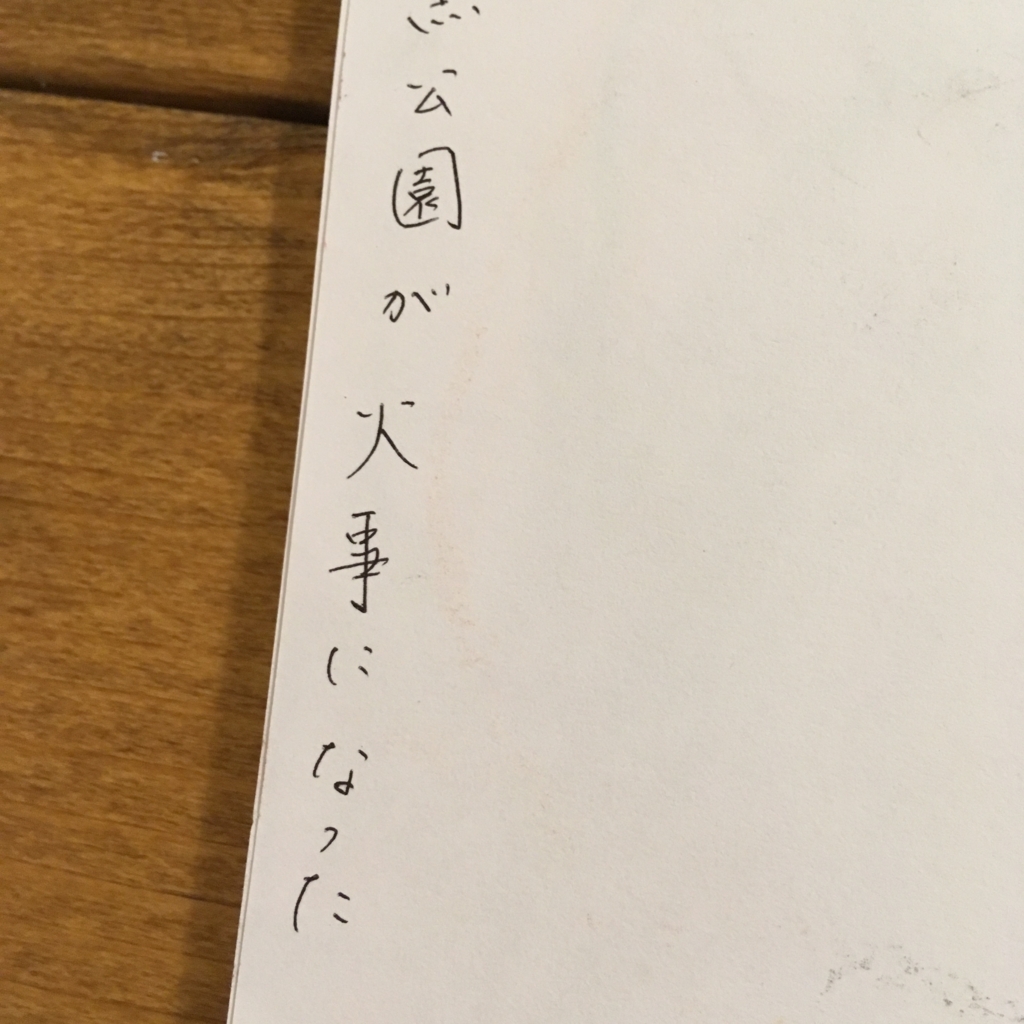 公園が火事になった